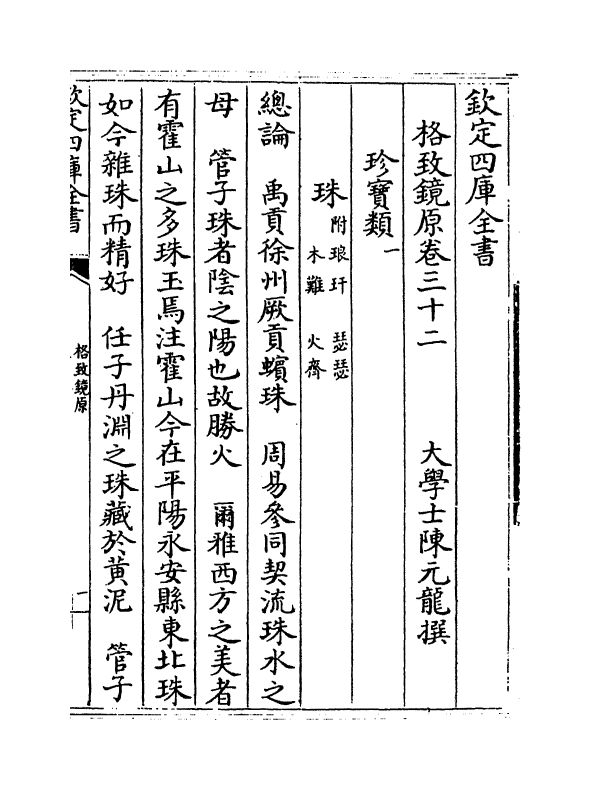 欽定四庫全書
格致鏡原卷三十二　大學士陳元龍撰
珍寶類一
珠附琅玕　瑟瑟
木難　火齊
總論　禹貢徐州厥貢蠙珠　周易參同契流珠水之
母　管子珠者陰之陽也故勝火　爾雅西方之美者
有霍山之多珠玉焉注霍山今在平陽永安縣東北珠
如今雜珠而精好　任子丹淵之珠藏於黃泥　管子
欽定四庫全書
格致鏡原
一